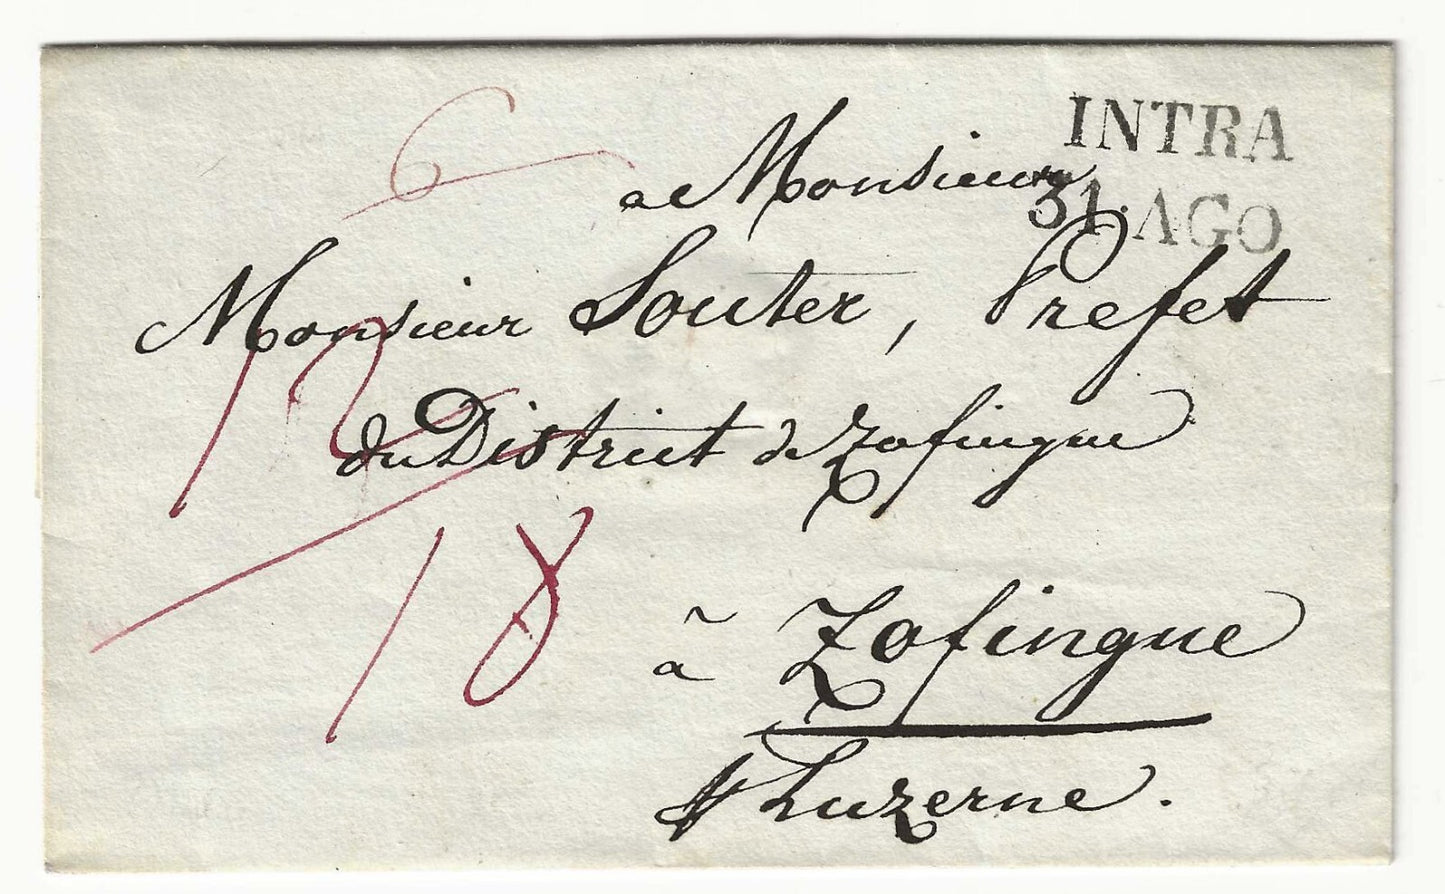 INTRA
31 AGO
6
a Monsieur
Monsieur Souter, Prefet
du District de Zofingue
12
18
à Zofingue
Luzerne.